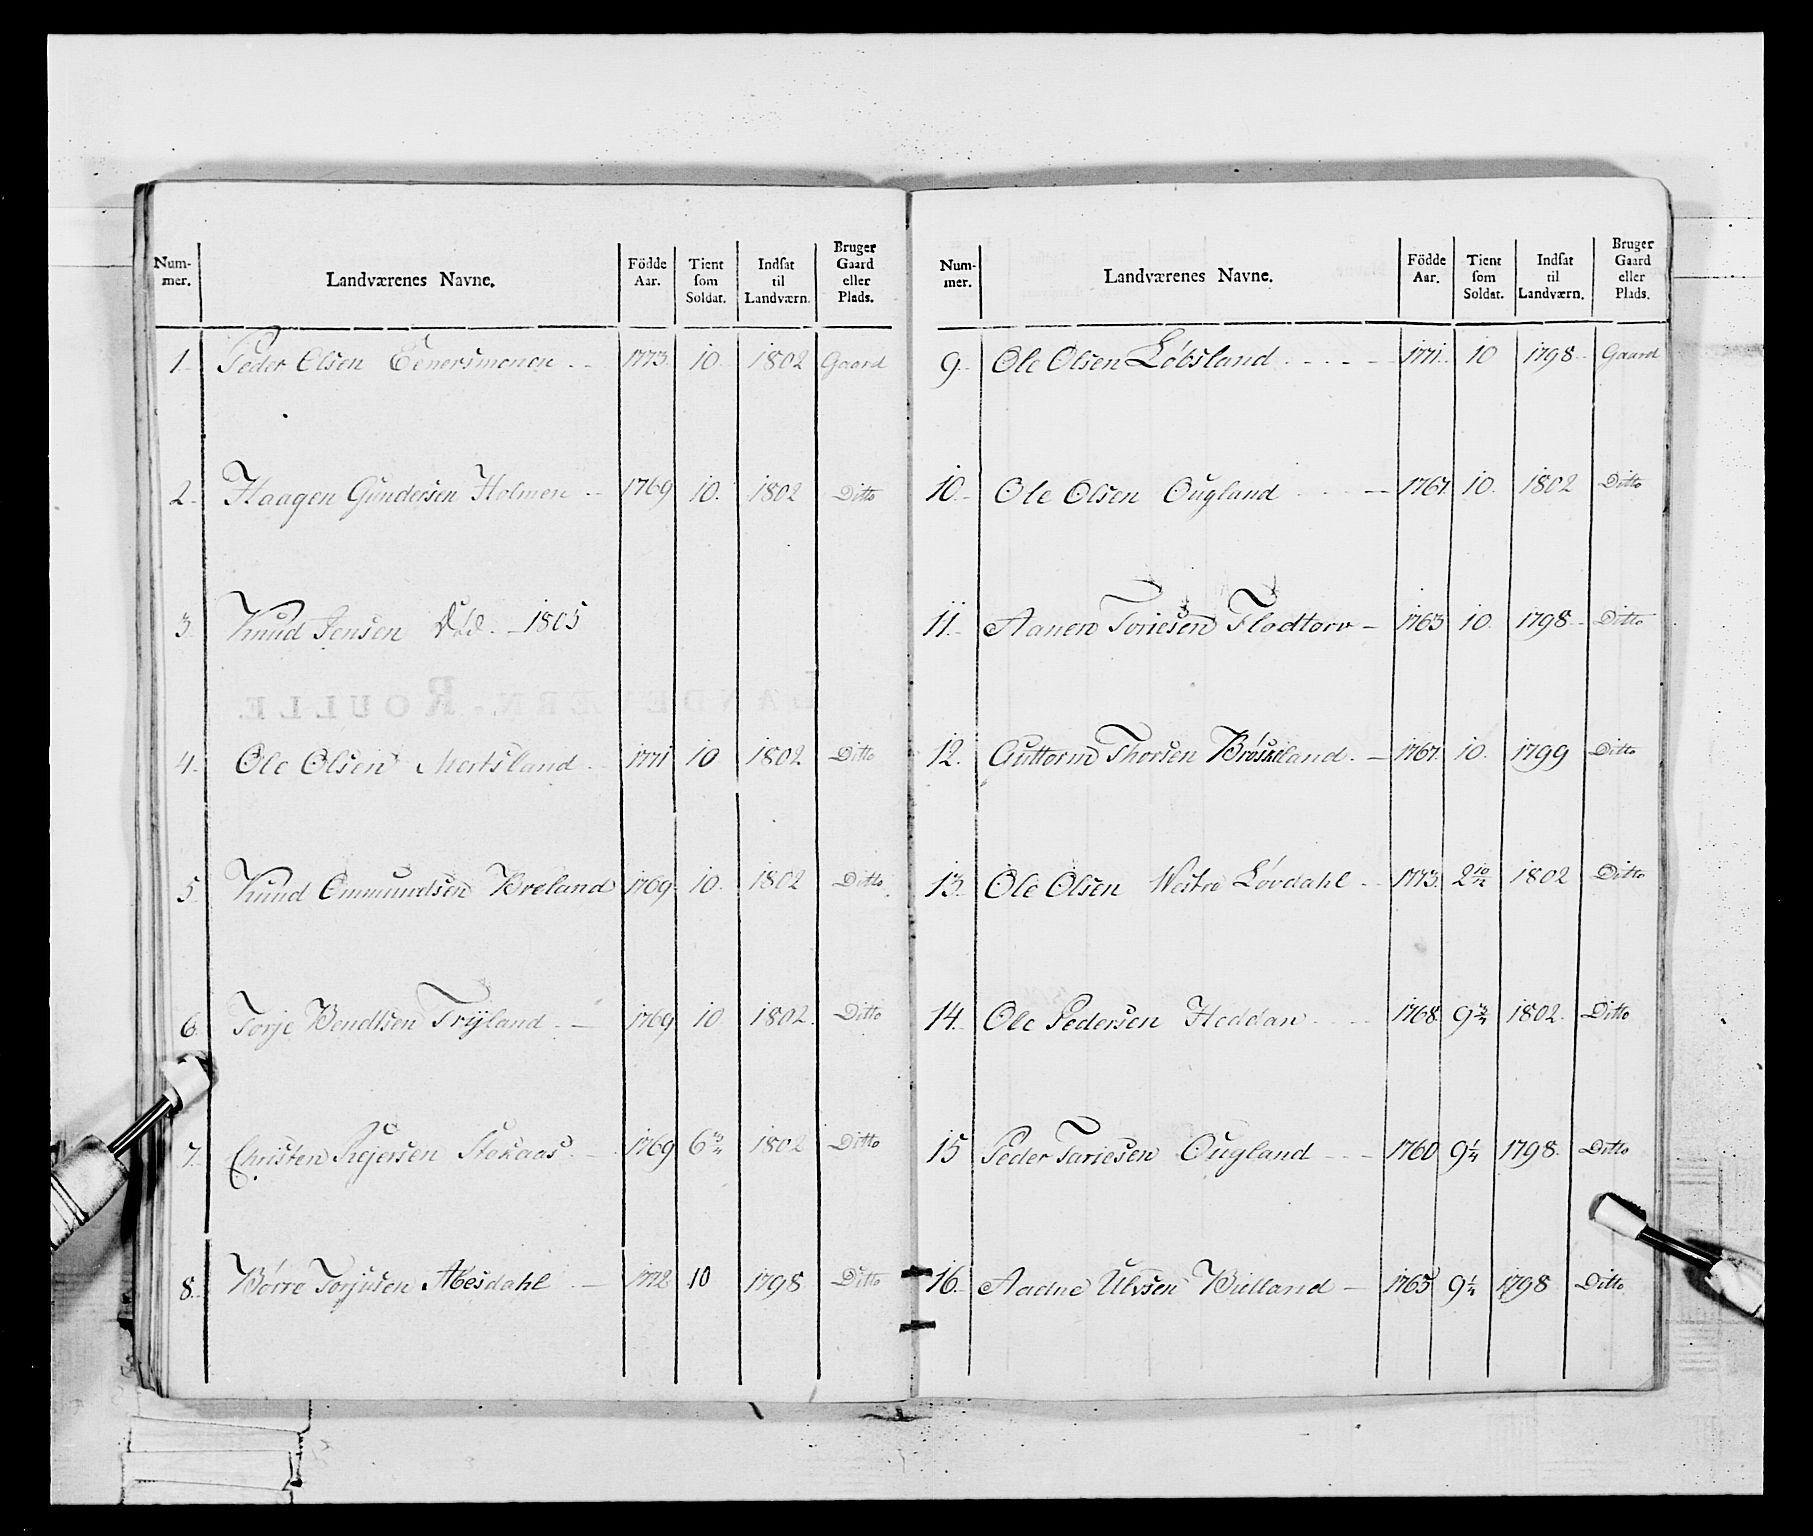 Num-mer. Landværenes Navne. Födde Aar. Tient som Soldat. Indsat til Landværn. Bruger Gaard eller Plads.
1. Peder Olsen Eenersmonen 1773. 10. 1802 Gaard
2. Haagen Gundersen Holmen 1769 10. 1802 Ditto
3. Knud Jensen Död. 1805
4. Ole Olsen 1771 10 1802 Ditto
5. Knud Ommundsen Breland 1769 10. 1802 Ditto
6 Torje Bendtsen Trÿland 1769 10 1802. Ditto
7. Christen Rejersen Stokaas 1769 6 3/4 1802 Ditto
8. Börre Torjusen Abesdahl 1772 10 1798 Ditto
LANDEVÆRN-ROULLE.
Num-mer. Landværenes Navne. Födde Aar. Tient som Soldat. Indsat til Landværn. Bruger Gaard eller Plads.
9. Ole Olsen Löbsland 1771. 10 1798 Gaard
10. Ole Olsen Ougland 1767. 10. 1802 Ditto
11. Aanen Toriesen Flodtorv 1763 10. 1798 Ditto
12. Guttorm Thorsen 1767. 10. 1799 Ditto
13. Ole Olsen Westre Lövdahl 1773. 2 10/12 1802 Ditto
14. Ole Pedersen Heddan 1768. 9 3/4 1802. Ditto
15 Peder Tariesen Ougland 1760 9 1/4 1798. Ditto
16. Aadne Ulvsen Bielland 1765 9 1/4 1798 Ditto